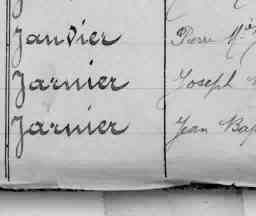 Janvier Pierre M
Jarnier Joseph
Jarnier Jean Bap